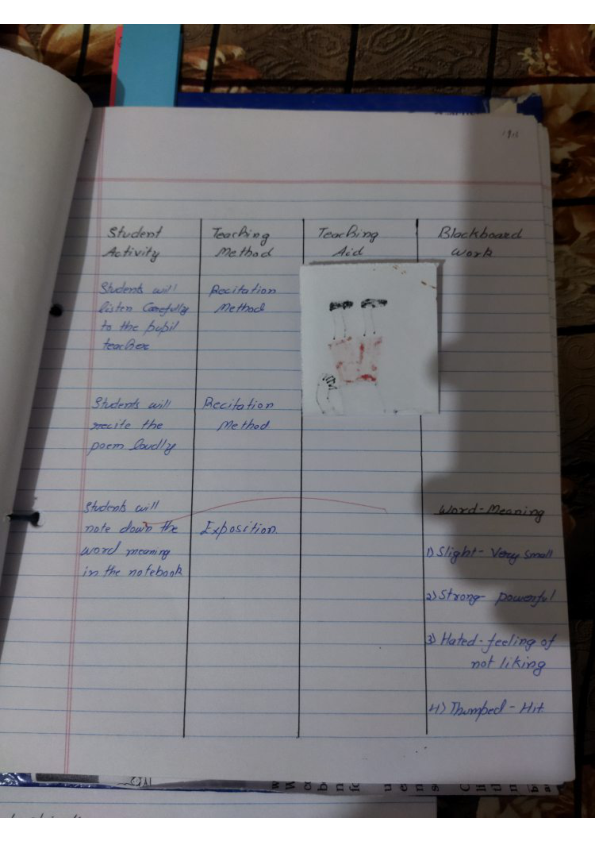 Student Activity
Teaching Method
Teaching Aid
Blackboard Work
Students will
listen Carefully
to the pupil
teacher
Recitation
Method
Students will
recite the
poem loudly
Recitation
Method
Students will
note down the
word meaning
in the notebook
Exposition.
Word-Meaning
1) Slight- Very small
2) Strong- powerful
3) Hated- feeling of
not liking
4) Thumped - Hit.